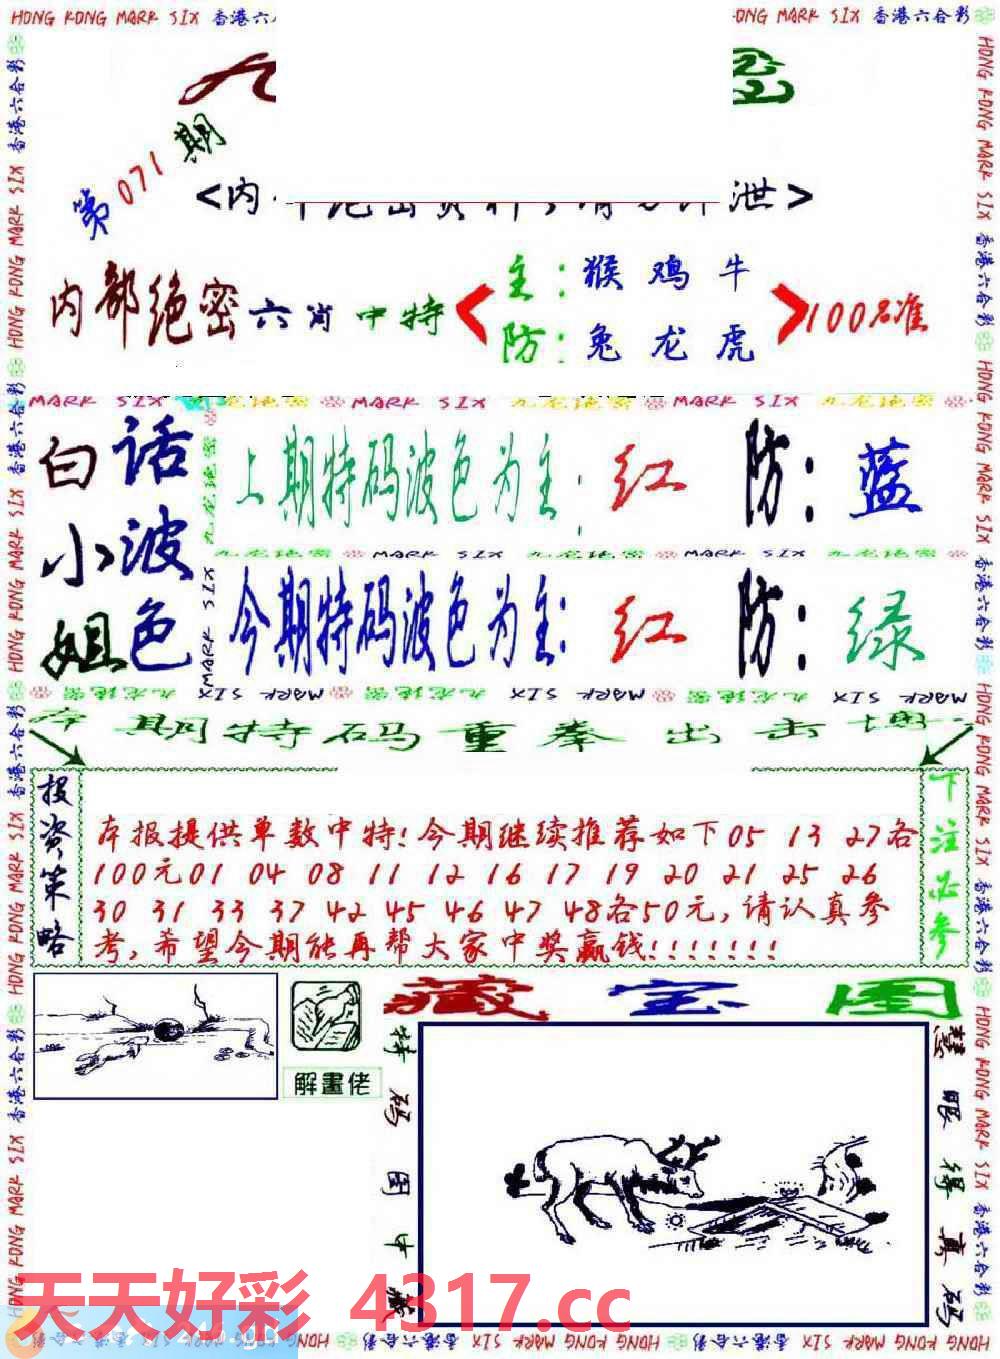 HONG KONG MARK SIX 香港六合彩
第071期
<内 泄>
内部绝密六肖中特
主：猴 鸡 牛
防：兔 龙 虎
100%准
MARK SIX 九龙绝密 MARK SIX 九龙绝密 MARK SIX 九龙绝密
白小姐
话波色
上期特码波色为主：红 防：蓝
九龙绝密 MARK SIX 九龙绝密 MARK SIX 九龙绝密
今期特码波色为主：红 防：绿
本期特码重拳出击
投资策略
本报提供单数中特！今期继续推荐如下05 13 27各
100元01 04 08 11 12 16 17 19 20 21 25 26
30 31 33 37 42 45 46 47 48各50元，请认真参
考，希望今期能再帮大家中奖赢钱！！！！！！！
下注必参
解畫佬
藏宝图
特码图中藏
慧眼得真码
天天好彩 4317.cc